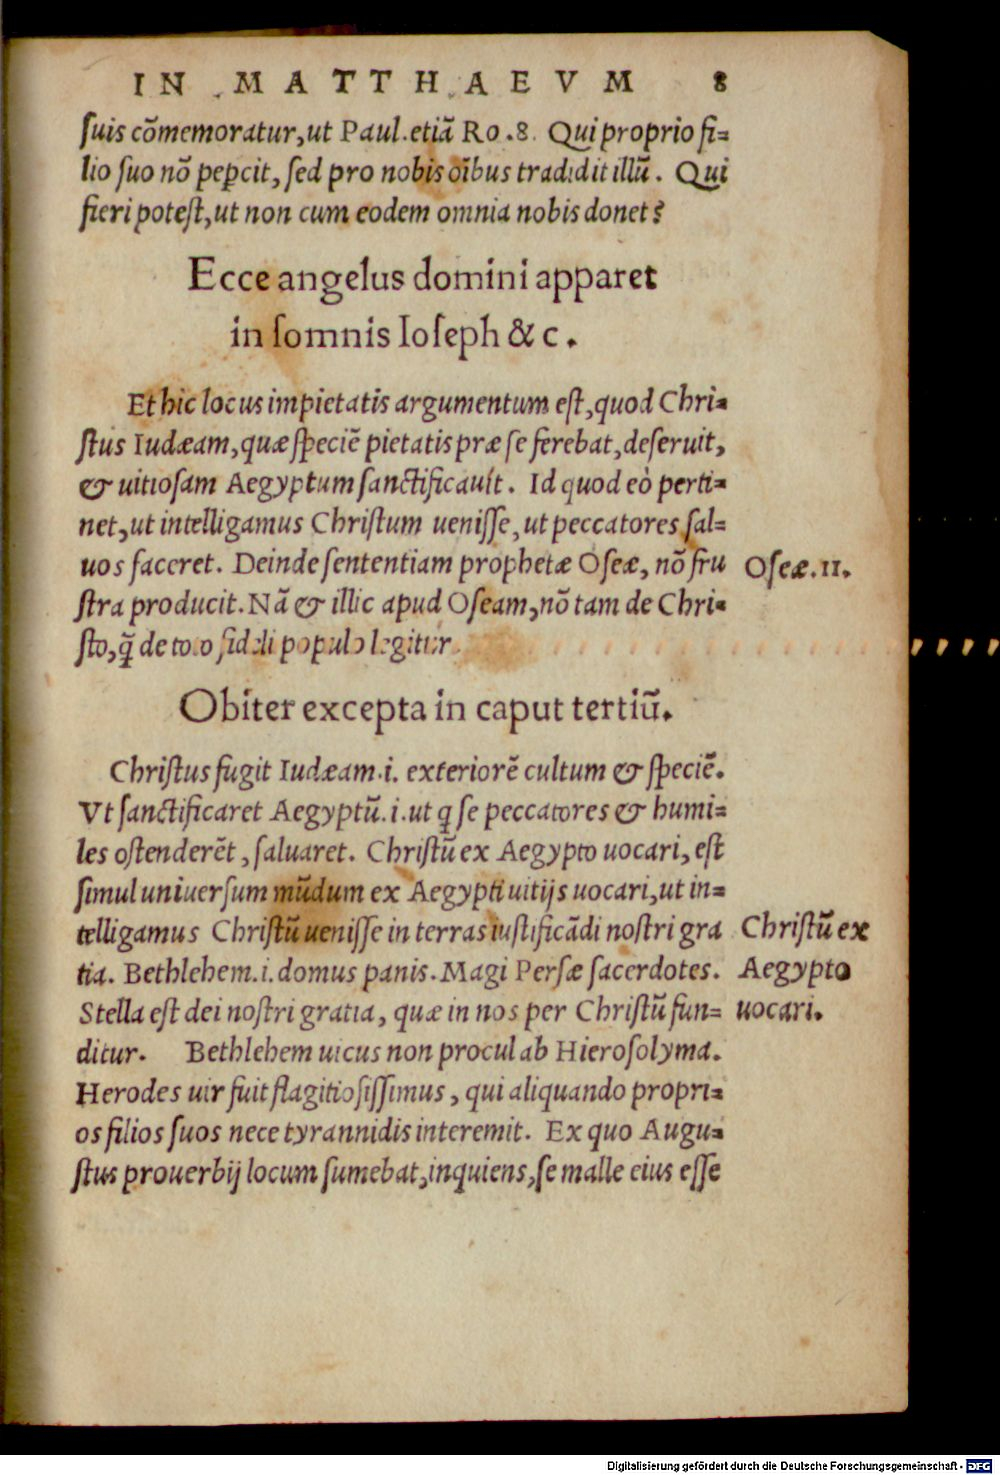 IN MATTHAEVM 8
suis cōmemoratur, ut Paul. etiā Ro. 8. Qui proprio fi=
lio suo nō pepcit, sed pro nobis oībus tradidit illū. Qui
fieri potest, ut non cum eodem omnia nobis donet?
Ecce angelus domini apparet
in somnis Ioseph & c.
Et hic locus impietatis argumentum est, quod Chri=
stus Iudæam, quæ speciē pietatis præ se ferebat, deseruit,
& uitiosam Aegyptum sanctificauit. Id quod eò perti=
net, ut intelligamus Christum uenisse, ut peccatores sal=
uos faceret. Deinde sententiam prophetæ Oseæ, nō fru
Oseæ. 11.
stra producit. Nā & illic apud Oseam, nō tam de Chri=
sto, q̃ de toto fideli populo legitur.
Obiter excepta in caput tertiū.
Christus fugit Iudæam .i. exteriorē cultum & speciē.
Vt sanctificaret Aegyptū .i. ut q se peccatores & humi=
les ostenderēt, saluaret. Christū ex Aegypto uocari, est
simul uniuersum mūdum ex Aegypti uitijs uocari, ut in=
telligamus Christū uenisse in terras iustificādi nostri gra
tia. Bethlehem .i. domus panis. Magi Persæ sacerdotes.
Stella est dei nostri gratia, quæ in nos per Christū fun=
Christū ex
Aegypto
uocari.
ditur. Bethlehem uicus non procul ab Hierosolyma.
Herodes uir fuit flagitiosissimus, qui aliquando propri=
os filios suos nece tyrannidis interemit. Ex quo Augu=
stus prouerbij locum sumebat, inquiens, se malle eius esse
Digitalisierung gefördert durch die Deutsche Forschungsgemeinschaft - DFG